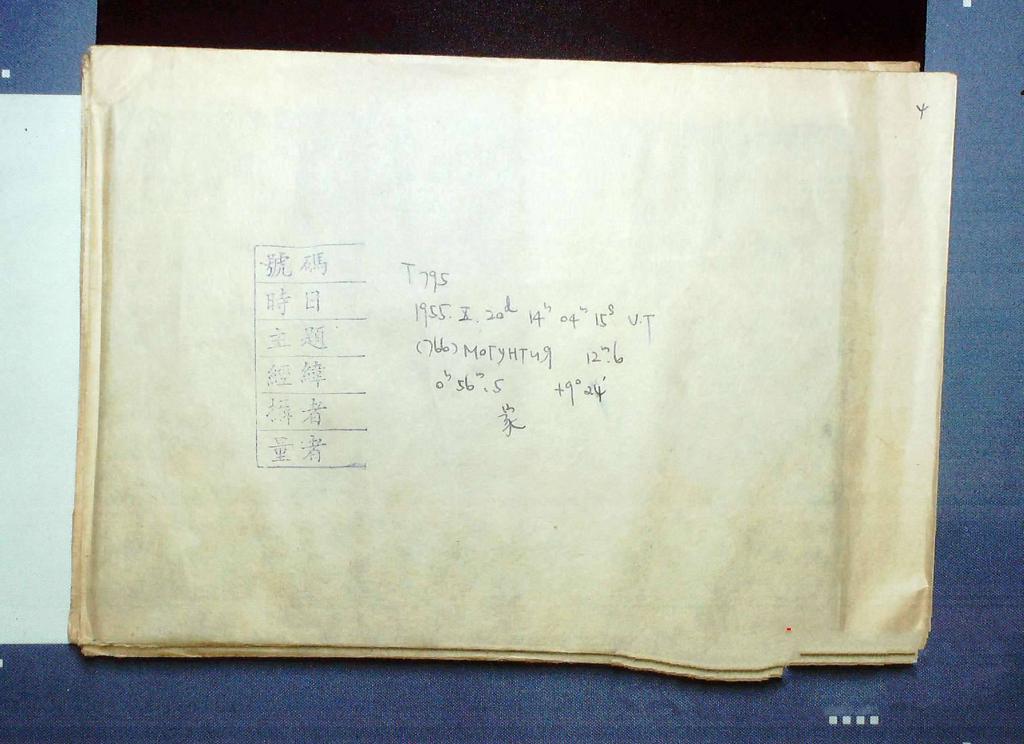 4
號碼 T795
時日 1955. X. 20ᵈ 14ʰ 04ᵐ 15ˢ U.T
主題 (766) МОГУНТИЯ 12ᵐ.6
經緯 0ʰ 56ᵐ.5 +9° 24′
攝者 家
量者